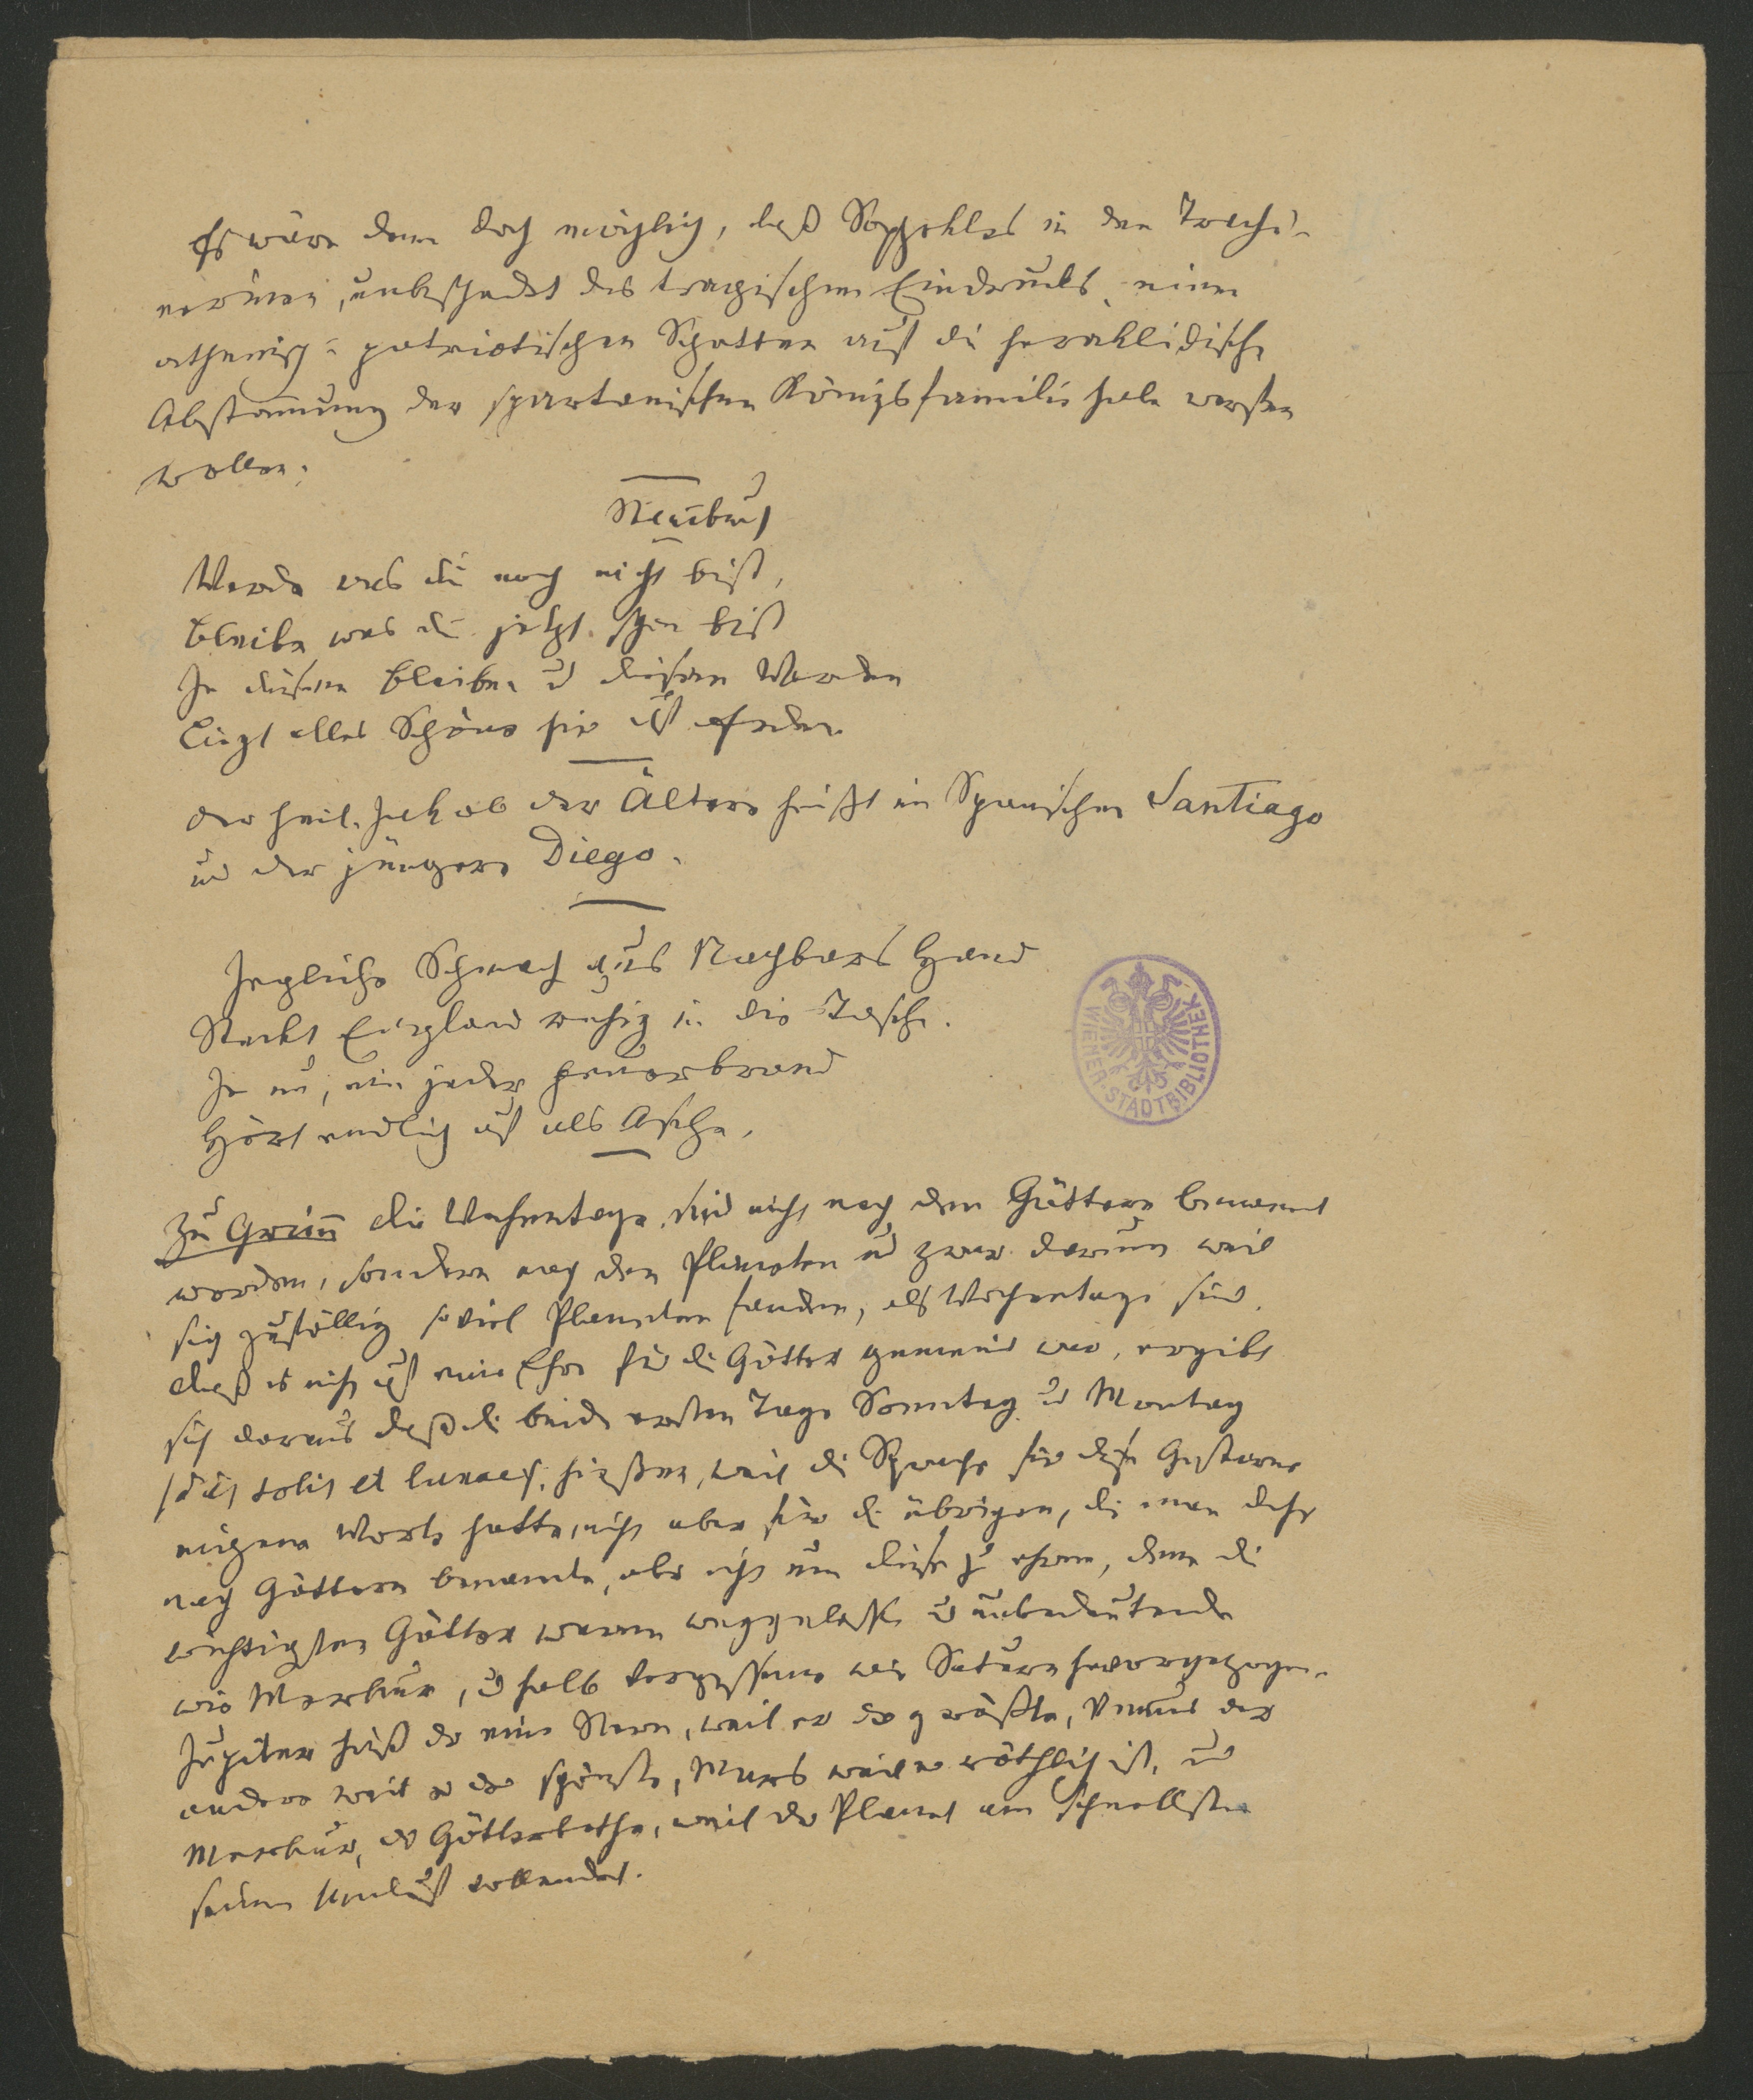 Es wäre denn doch möglich, daß Sophokles in den Trachi-
nerinen, unbeschadet des tragischen Eindrucks, einen
athenisch-patriotischen Schatten auf die heraklidische
Abstam̅ung der spartanischen Königsfamilie habe werfen
wollen.
Stam̅buch
Werde was du noch nicht bist,
Bleibe was du jetzt schon bist
In diesem Bleiben u diesem Werden
Liegt alles Schöne hier auf Erden.
Der heil. Jakob der Ältere heißt im Spanischen Santiago
und der jüngere Diego.
Jegliche Schmach aus Nachbars Hand
Steckt England ruhig in die Tasche.
Je nu, ein jeder Feuerbrand
Hört endlich auf als Asche.
Zu Grim̅ Die Wochentage sind nicht nach den Göttern benannt
worden, sondern nach den Planeten und zwar darum weil
sich zufällig soviel Planeten fanden, als Wochentage sind.
Daß es nicht auf eine Ehre für die Götter gemeint war, ergibt
sich daraus daß die beiden ersten Tage Sonntag u Montag
(dies solis et lunae) hießen, weil die Sprache für diese Gestirne
eigene Worte hatte, nicht aber für die übrigen, die man daher
nach Göttern benannte, aber nicht um diese zu ehren, denn die
wichtigsten Götter waren weggelassen u unbedeutende
wie Merkur, u halb vergessene wie Saturn hervorgezogen.
Jupiter hieß der eine Stern, weil er der größte, Venus der
andere weil er der schönste, Mars weil er röthlich ist, und
Merkur, der Götterbothe, weil der Planet am schnellsten
seinen Umlauf vollendet.
WIENER-STADTBIBLIOTHEK